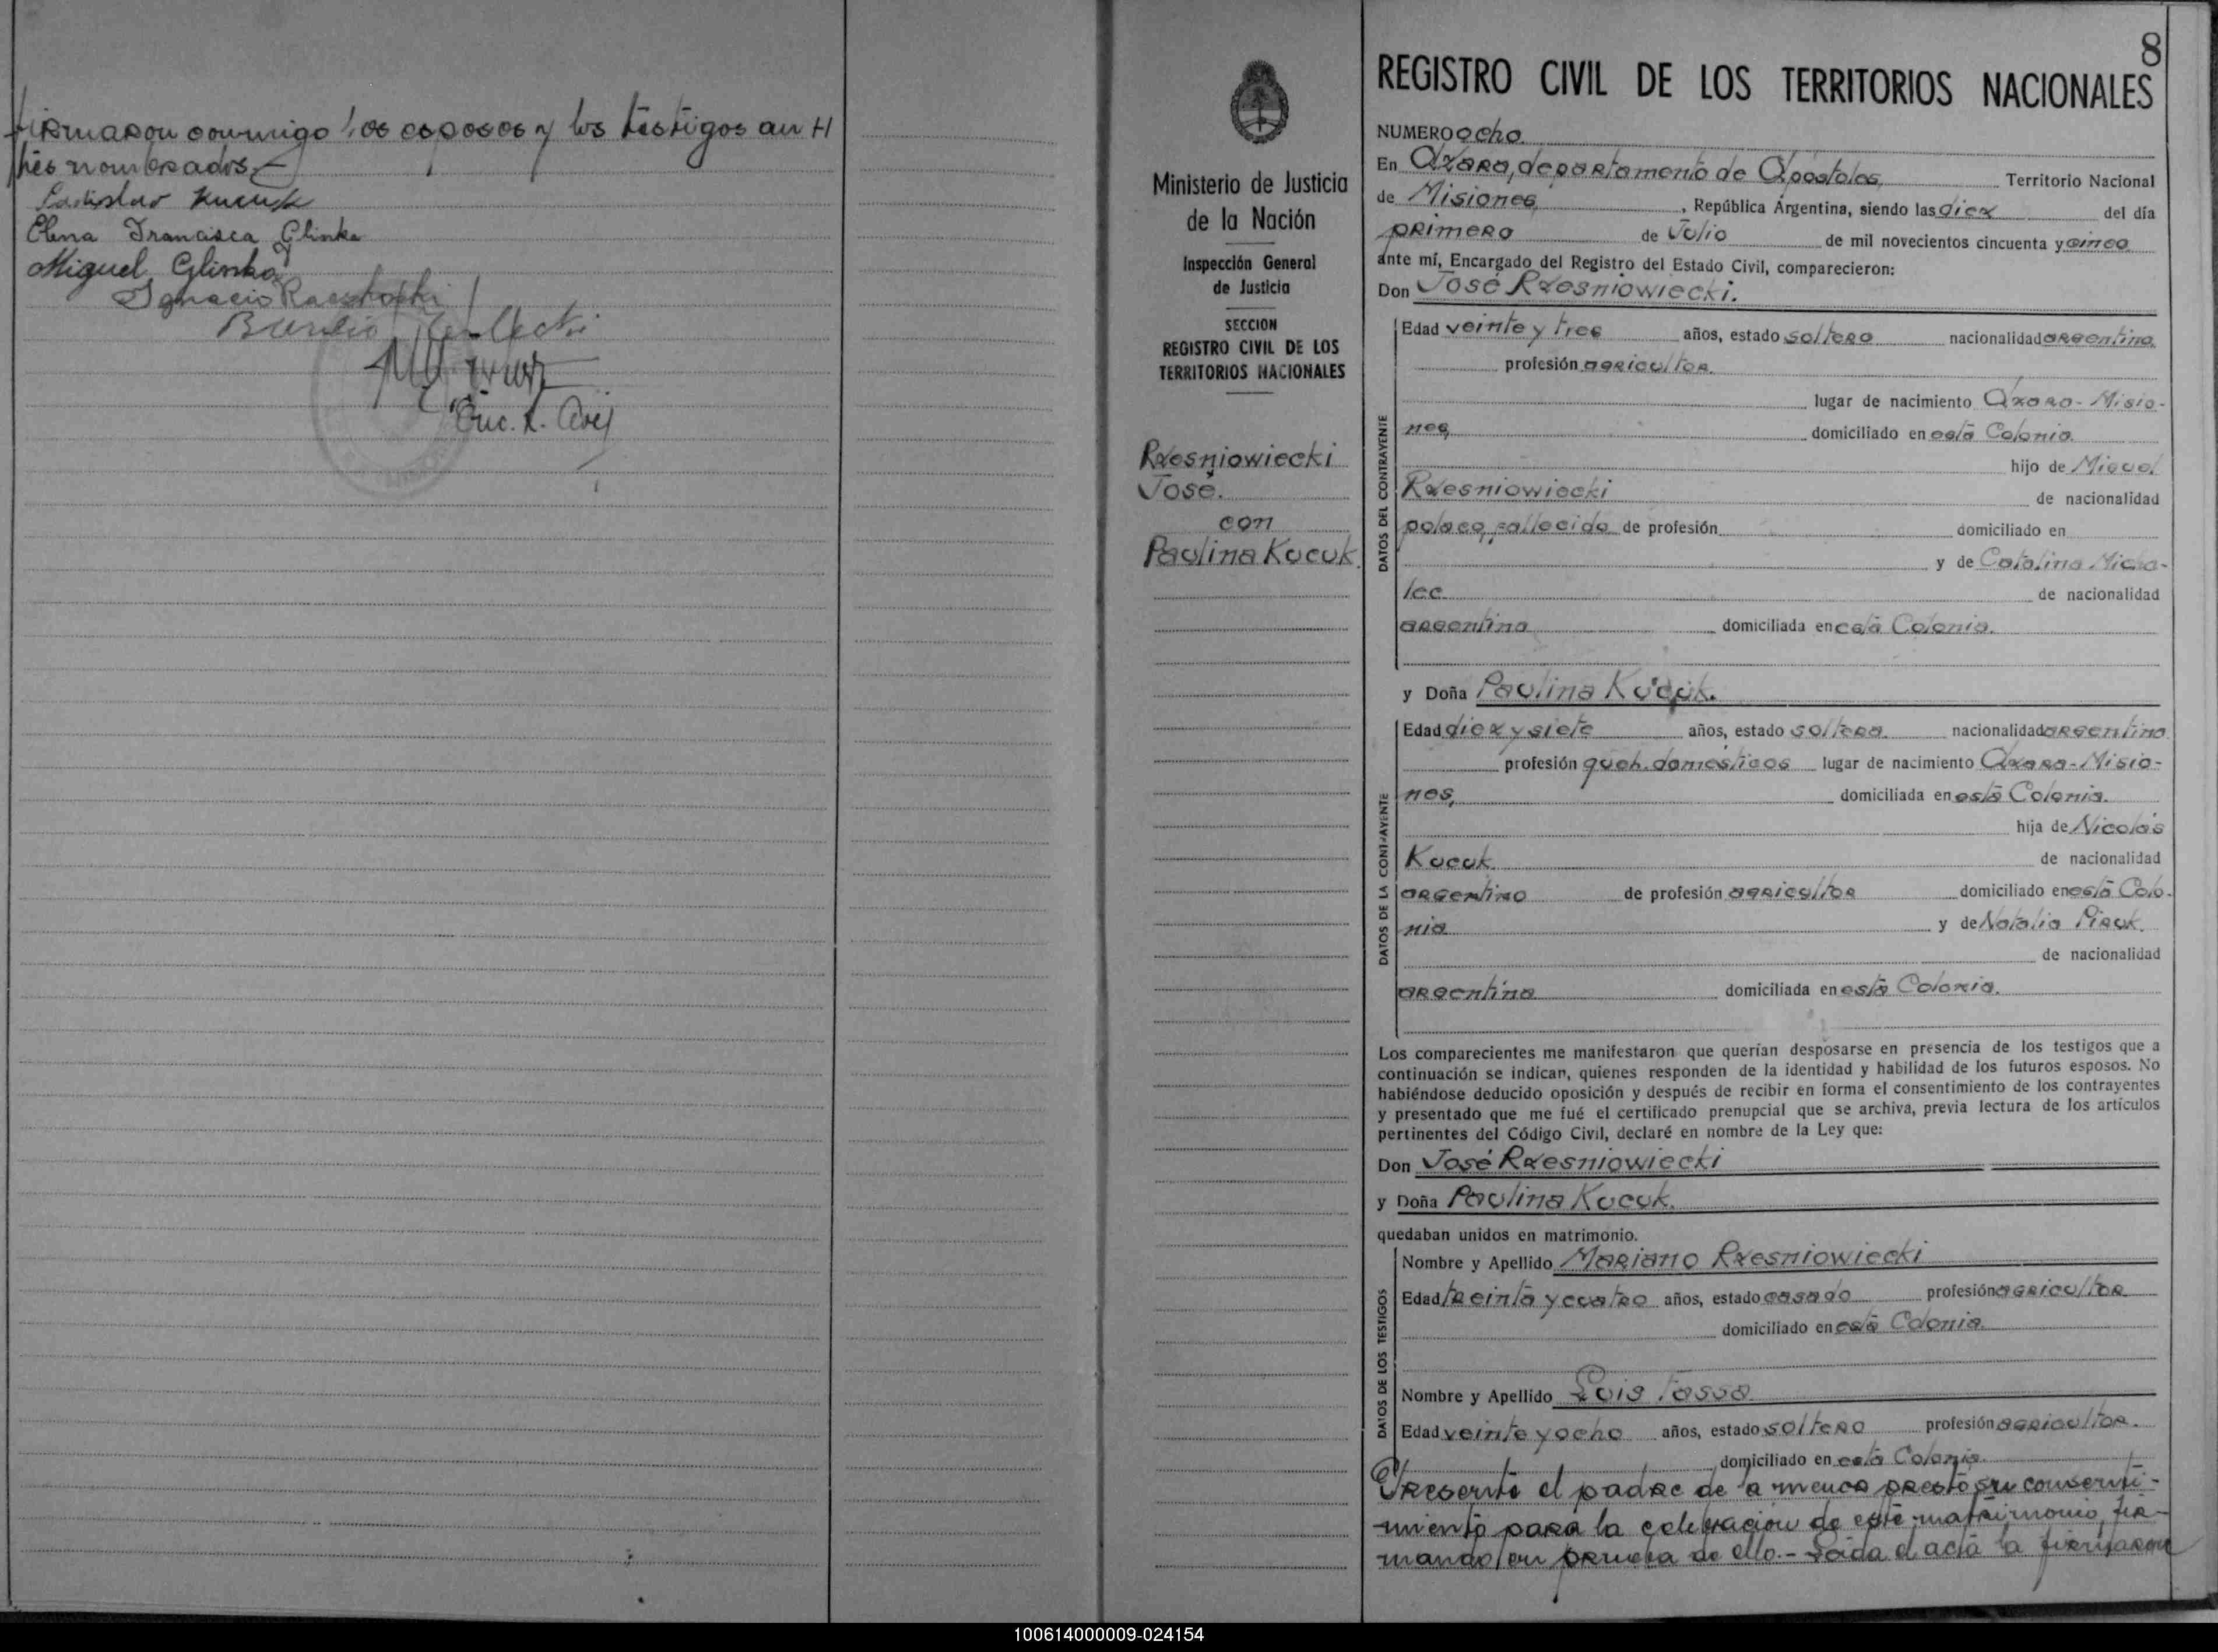 firmaron conmigo los esposos y los testigos an H
tes nombrados.
Ladislao Kucuk
Elena Francisca Glinka
Miguel Glinka
Ignacio
Enc. R. Civil
Ministerio de Justicia
de la Nación
Inspección General
de Justicia
SECCION
REGISTRO CIVIL DE LOS
TERRITORIOS NACIONALES
Rzesniowiecki
José.
con
Paulina Kucuk.
8
REGISTRO CIVIL DE LOS TERRITORIOS NACIONALES
NUMERO ocho.
En Azara, departamento de Apóstoles, Territorio Nacional
de Misiones, República Argentina, siendo las diez del día
primero de Julio de mil novecientos cincuenta y cinco
ante mí, Encargado del Registro del Estado Civil, comparecieron:
Don José Rzesniowiecki.
DATOS DEL CONTRAYENTE
Edad veinte y tres años, estado soltero nacionalidad argentina
profesión agricultor.
lugar de nacimiento Azara-Misio-
nes, domiciliado en esta Colonia.
hijo de Miguel
Rzesniowiecki de nacionalidad
polaco, fallecido de profesión domiciliado en
y de Catalina Micha-
lec de nacionalidad
argentina domiciliada en esta Colonia.
y Doña Paulina Kucuk.
DATOS DE LA CONTRAYENTE
Edad diez y siete años, estado soltera nacionalidad argentina
profesión queh. domésticos lugar de nacimiento Azara-Misio-
nes, domiciliada en esta Colonia.
hija de Nicolás
Kucuk de nacionalidad
argentino de profesión agricultor domiciliado en esta Colo-
nia y de Natalia Piruk.
de nacionalidad
argentina domiciliada en esta Colonia.
Los comparecientes me manifestaron que querían desposarse en presencia de los testigos que a
continuación se indican, quienes responden de la identidad y habilidad de los futuros esposos. No
habiéndose deducido oposición y después de recibir en forma el consentimiento de los contrayentes
y presentado que me fué el certificado prenupcial que se archiva, previa lectura de los artículos
pertinentes del Código Civil, declaré en nombre de la Ley que:
Don José Rzesniowiecki
y Doña Paulina Kucuk.
quedaban unidos en matrimonio.
DATOS DE LOS TESTIGOS
Nombre y Apellido Mariano Rzesniowiecki
Edad treinta y cuatro años, estado casado profesión agricultor
domiciliado en esta Colonia.
Nombre y Apellido Luis Tassa
Edad veinte y ocho años, estado soltero profesión agricultor.
domiciliado en esta Colonia.
Presente el padre de la menor prestó su consenti-
miento para la celebración de este matrimonio, fir-
mando en prueba de ello.- Leída el acta la firmaron
100614000009-024154